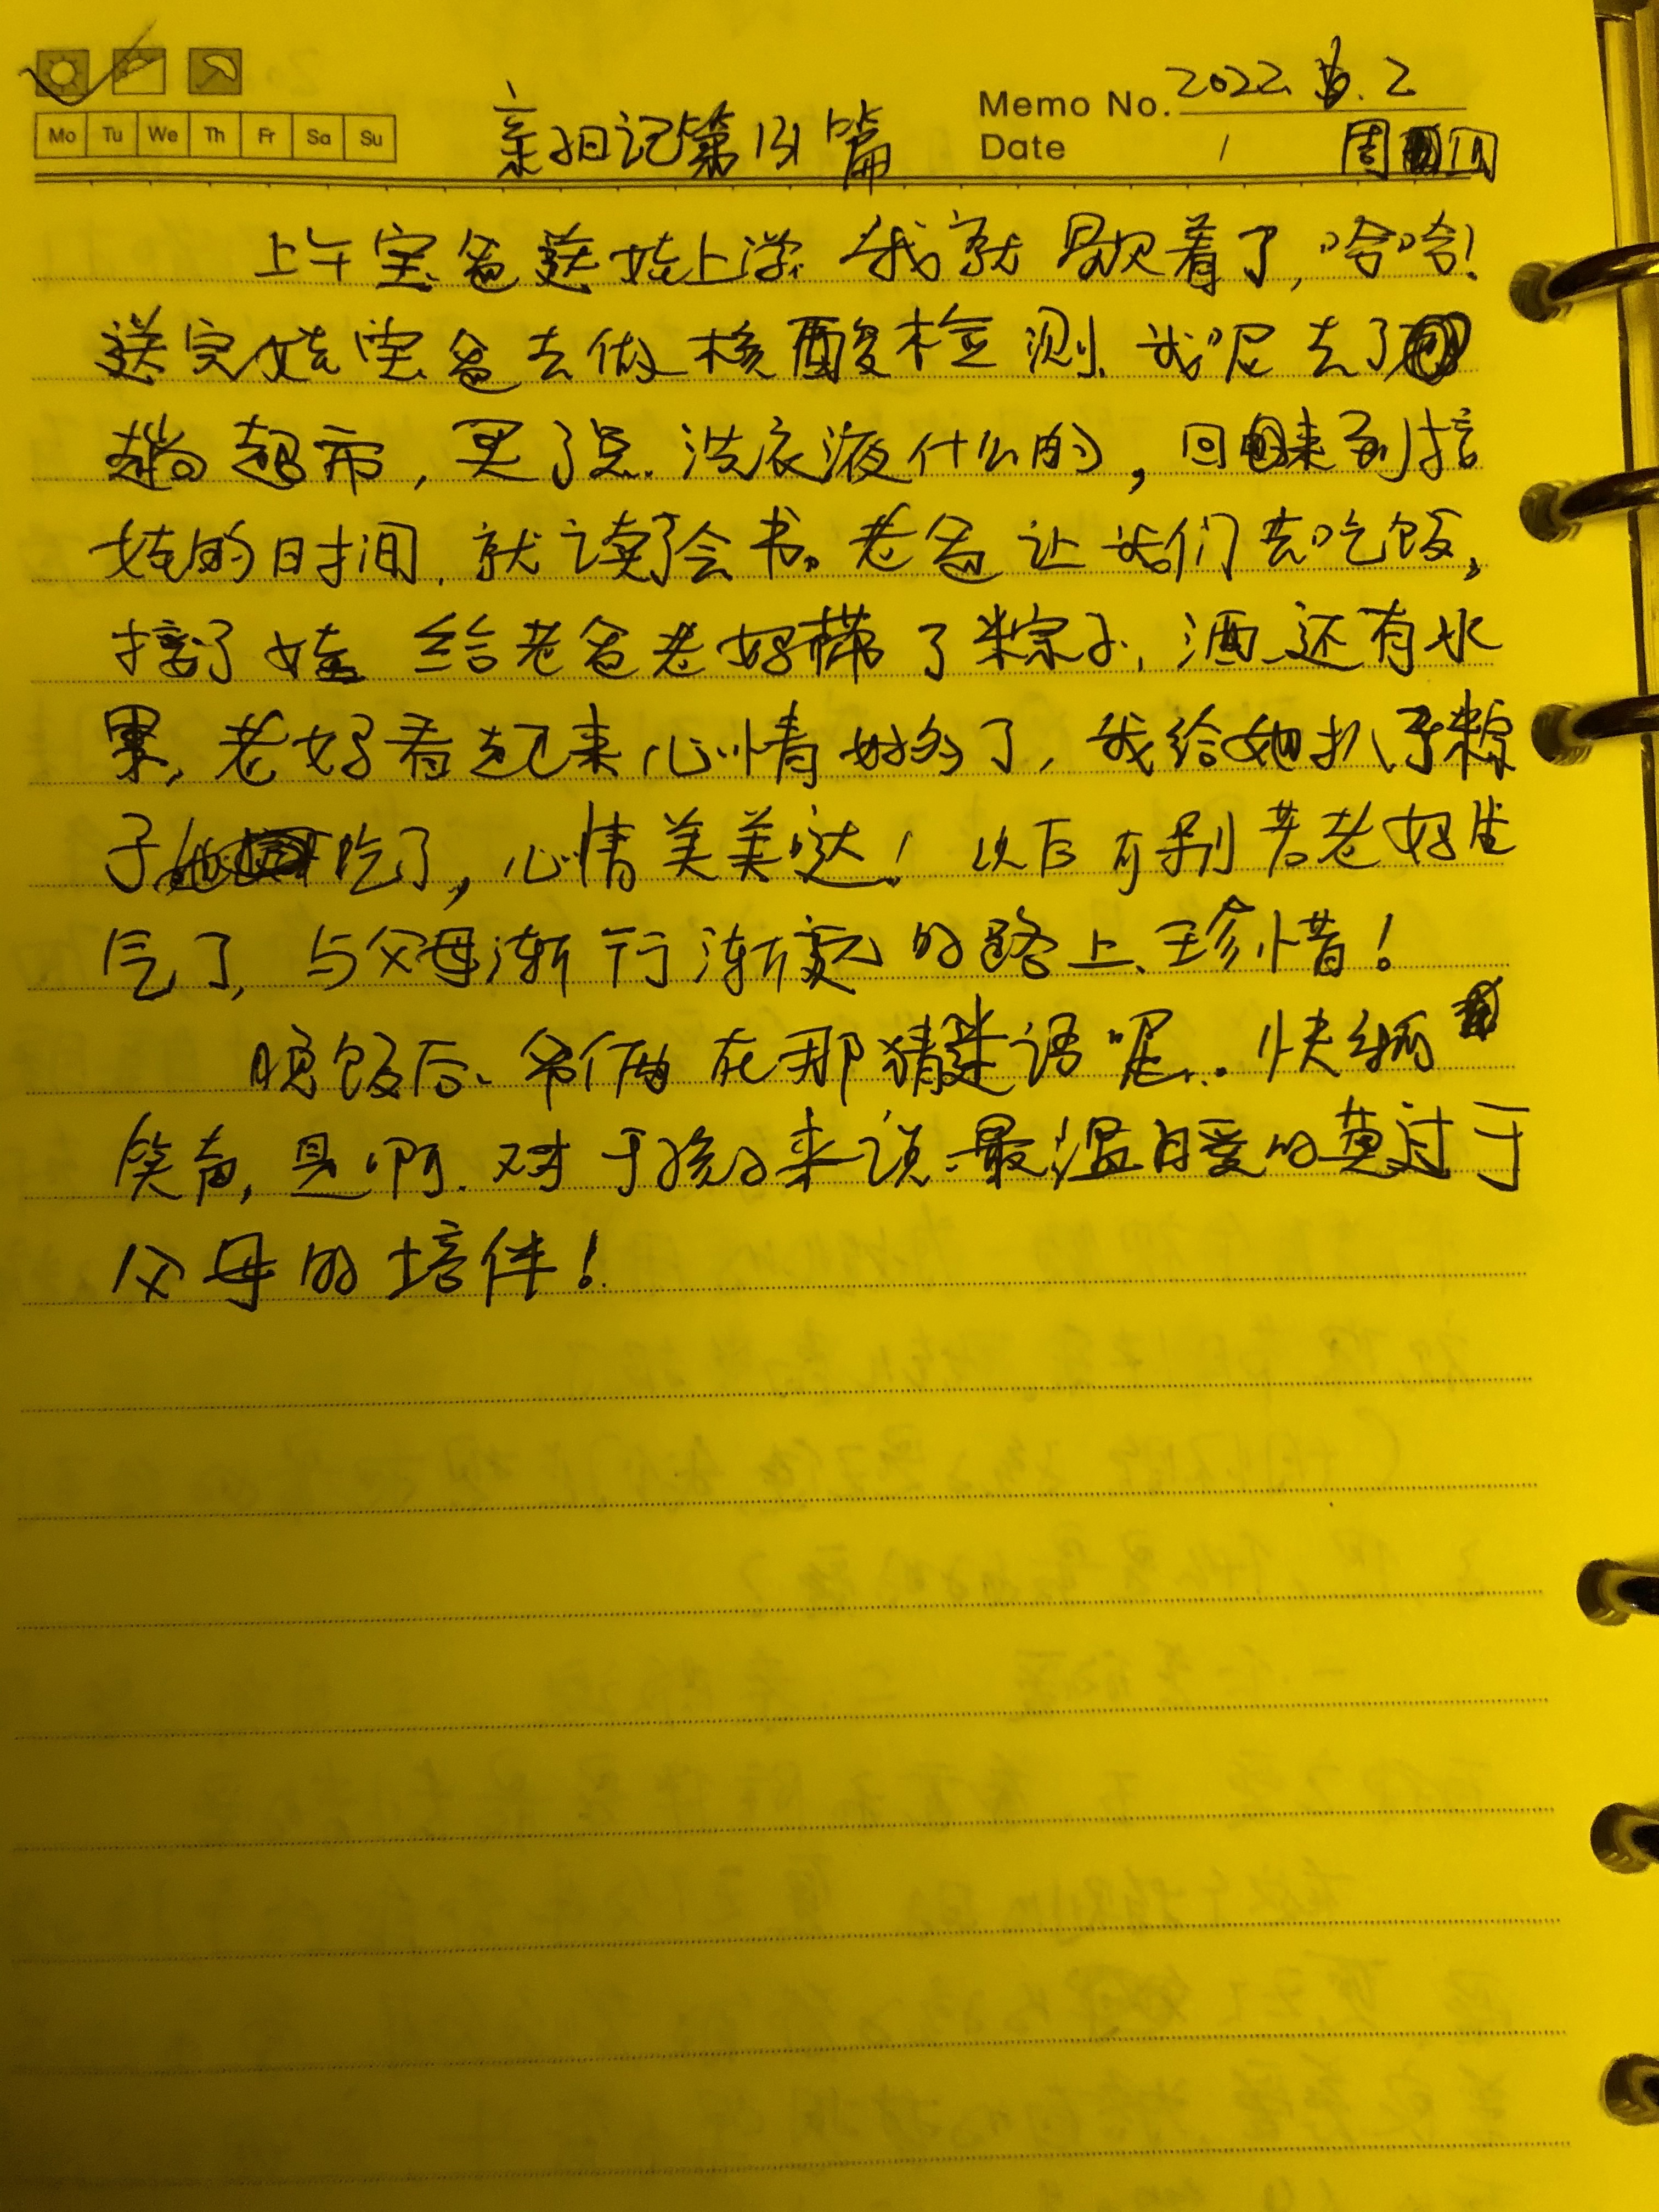 Memo No. 2022.6.2
Mo Tu We Th Fr Sa Su
亲子日记第131篇
Date / 周四
上午宝爸送娃上学,我就歇着了,哈哈!
送完娃宝爸去做核酸检测,我呢去了
趟超市,买了点洗衣液什么的,回来到接
娃的时间,就读了会书。老爸让我们去吃饭,
接了娃 给老爸老妈带了粽子,酒还有水
果,老妈看起来心情好多了,我给她扒了粽
子她吃了,心情美美哒!以后可别惹老妈生
气了,与父母渐行渐远的路上,珍惜!
晚饭后、爷俩在那猜谜语呢..快乐
笑声,是啊.对于孩子来说最温暖的莫过于
父母的培伴!